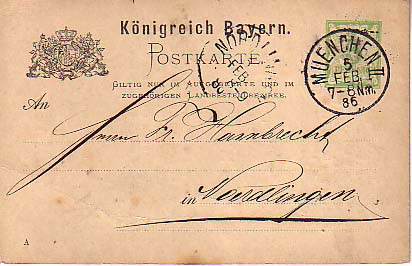 Königreich Bayern.
POSTKARTE.
GILTIG NUR IM AUFGABEORTE UND IM
ZUGEHÖRIGEN LANDBESTELLBEZIRKE.
NÖRDLIN
FEB
MUENCHEN II.
5
FEB
7-8 Nm.
86
An
Herrn Fr. Hambrecht
in Noerdlingen
A